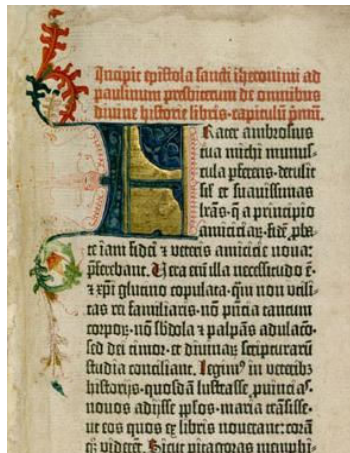 Incipit epistola sancti iheronimi ad
paulinum presbiterum de omnibus
divine historie libris·capitulū pͥmū.
Frater ambrosius
tua michi munus-
cula pferens·detulit
sil' et suavissimas
lrās·q̄ a principio
amicicie fidē pba-
te iam fidei ⁊ veteris amicicie nova
pferebant. Vera em̄ illa necessitudo ē·
⁊ xp̄i glutino copulata·qm̄ non utili-
tas rei familiaris·nō pn̄cia tantum
corpor·nō sb̓dola ⁊ palpās adulacō·
sed dei timor·et divinar scripturarū
studia conciliant. Legimꝰ in veteribꝫ
historijs·quosdā lustrasse provincias
novos adijsse pplos·maria trāsisse·
ut eos quos ex libris noverant·corā
qꝫ viderēt. Sicut pitagoras memphi-